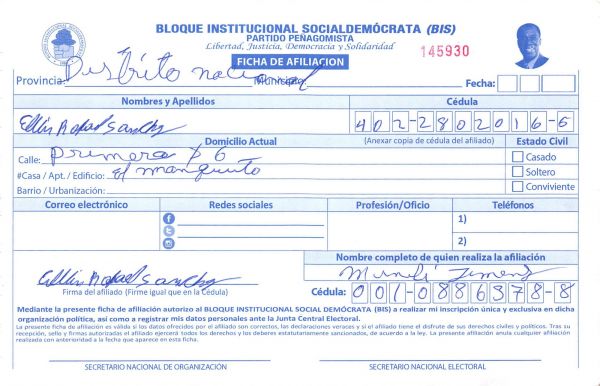 BLOQUE INSTITUCIONAL SOCIALDEMÓCRATA (BIS)
PARTIDO PEÑAGOMISTA
Libertad, Justicia, Democracia y Solidaridad
FICHA DE AFILIACION
145930
Provincia: Distrito nacional Municipio: Fecha:
Nombres y Apellidos
Cédula
Rafael Sanchez
402-2802016-6
(Anexar copia de cédula del afiliado)
Domicilio Actual
Estado Civil
Calle: primera # 6
Casado
#Casa / Apt. / Edificio: el manguito
Soltero
Barrio / Urbanización:
Conviviente
Correo electrónico
Redes sociales
Profesión/Oficio
Teléfonos
1)
2)
Nombre completo de quien realiza la afiliación
Rafael Sanchez
Firma del afiliado (Firme igual que en la Cédula)
Cédula: 001-0886378-8
Mediante la presente ficha de afiliación autorizo al BLOQUE INSTITUCIONAL SOCIAL DEMÓCRATA (BIS) a realizar mi inscripción única y exclusiva en dicha
organización política, así como a registrar mis datos personales ante la Junta Central Electoral.
La presente ficha de afiliación es válida si los datos ofrecidos por el afiliado son correctos, las declaraciones veraces y si el afiliado tiene el disfrute de sus derechos civiles y políticos. Tras su
recepción, sello y firmas autorizadas el afiliado ejercerá todos los derechos y los deberes estatutariamente sancionados, de acuerdo a la ley. La presente afiliación anula cualquier afiliación
realizada con anterioridad a la fecha que aparece en esta ficha.
SECRETARIO NACIONAL DE ORGANIZACIÓN
SECRETARIO NACIONAL ELECTORAL